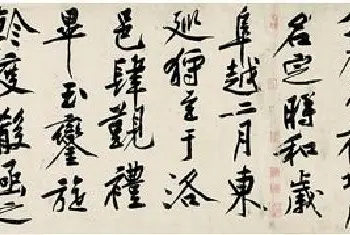 名定時和歲
阜越二月東
巡狩至于洛
邑肆覲禮
畢玉鑾旋
軫度殽函之